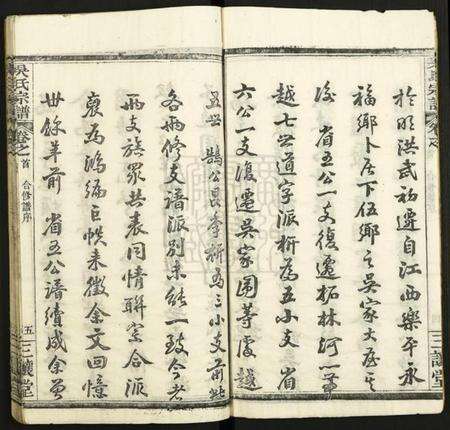 於明洪武初遷自江西樂平永
福鄉卜居下伍鄉之吳家丈屋
後 省五公一支復遷柘林河
越七世道字派析為五小支 省
六公一支復遷吳家園等處越
五世 鵠公昆季析為三小支前此
各兩修支譜派別未能一致今者
兩支族眾共表同情聯宗合派
裒為鴻編巨帙來徵余文回憶
卅餘年前 省五公譜續成余曾
吳氏宗譜
卷之首 合修譜序
五 三讓堂
三讓堂